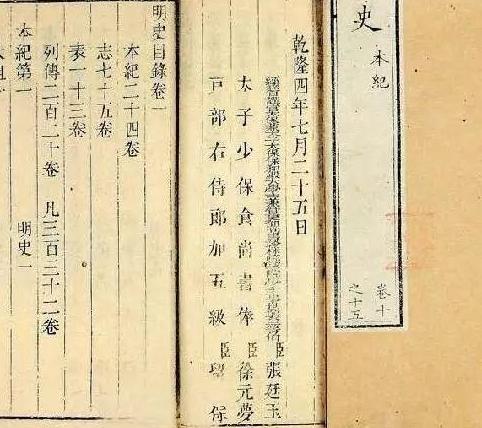 史 本紀
卷十
之十五
乾隆四年七月二十五日
臣張廷玉
太子少保食尚書俸 臣徐元夢
戶部右侍郎加五級 臣留保
明史目錄卷一
本紀二十四卷
志七十五卷
表一十三卷
列傳二百二十卷 凡三百三十二卷
本紀第一 明史一